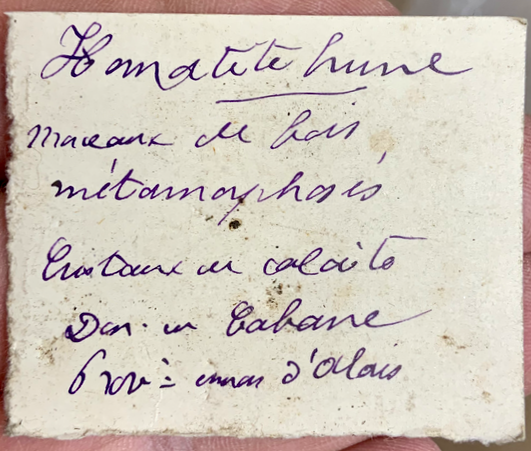 Hématite brune
Morceaux de bois
métamorphosés
Cristaux de calcite
Don. de Cabane
Prov= d'Alais